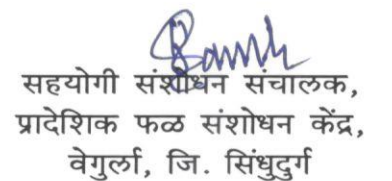 सहयोगी संशोधन संचालक,
प्रादेशिक फळ संशोधन केंद्र,
वेगुर्ला, जि. सिंधुदुर्ग